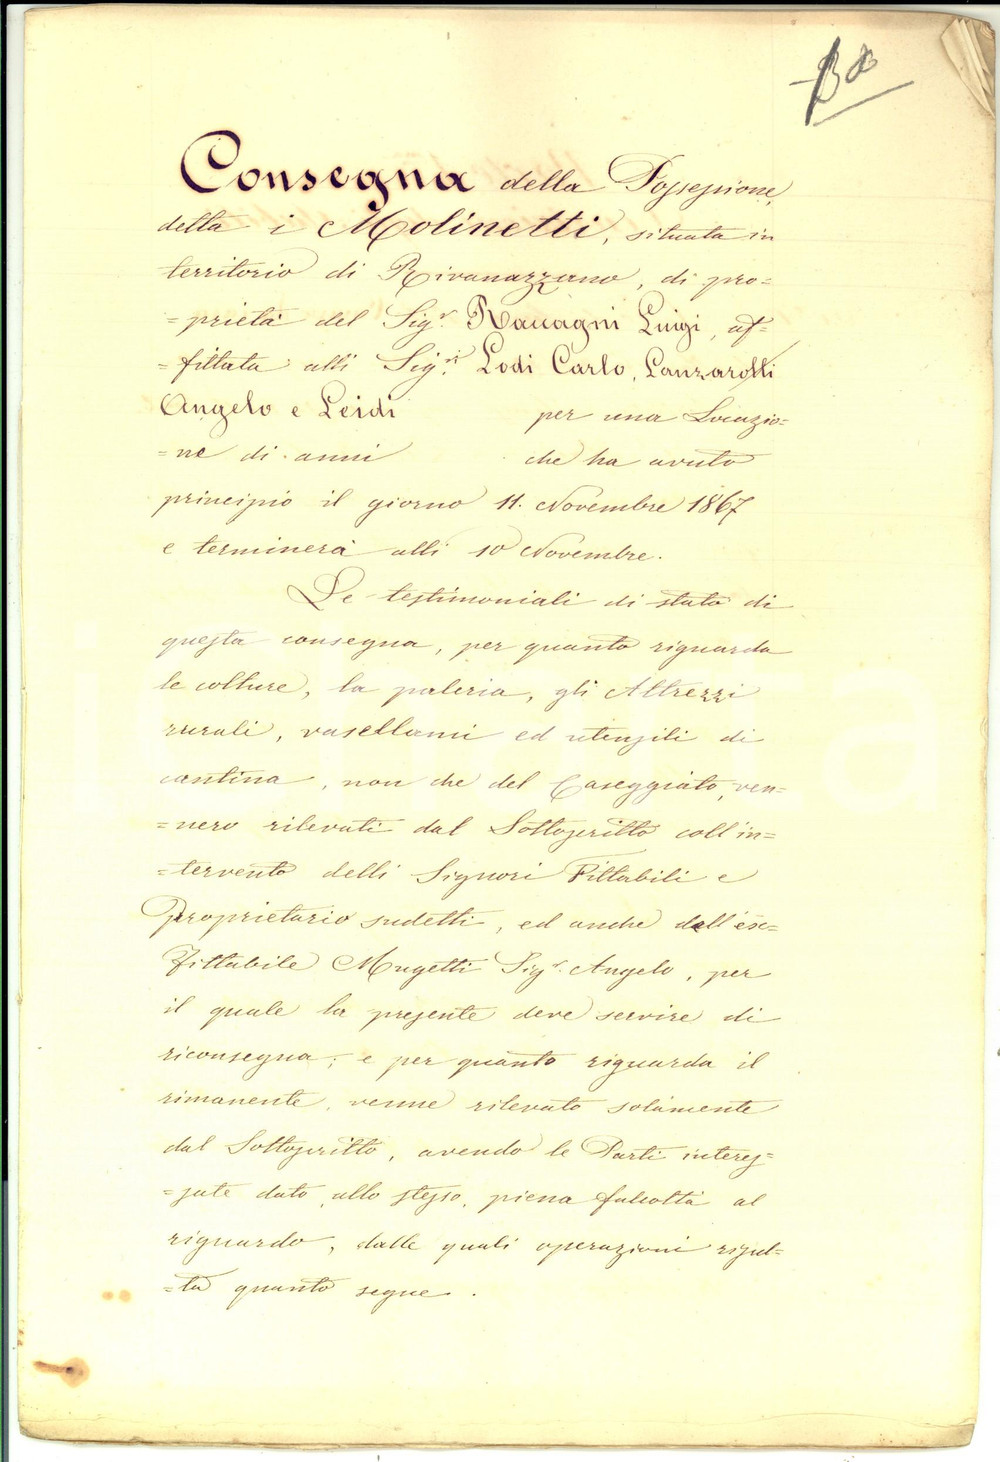 Consegna della Possessione,
detta i Molinetti, situata in
territorio di Rivanazzano, di pro=
=prietà del Sigr. Raccagni Luigi, af=
=fittata alli Sigri. Lodi Carlo, Lanzarotti
Angelo e Leidi per una Locazio=
=ne di anni che ha avuto
principio il giorno 11. Novembre 1867
e terminerà alli 10 Novembre.
Le testimoniali di stato di
questa consegna, per quanto riguarda
le colture, la paleria, gli Attrezzi
rurali, vasellami ed utensili di
cantina, non che del Caseggiato, ven=
=nero rilevati dal Sottoscritto coll'in=
=tervento delli Signori Fittabili e
Proprietario sudetti, ed anche dall'ex=
Fittabile Mugetti Sigr. Angelo, per
il quale la presente deve servire di
riconsegna; e per quanto riguarda il
rimanente, venne rilevato solamente
dal Sottoscritto, avendo le Parti interes=
=sate dato allo stesso, piena facoltà al
riguardo, dalle quali operazioni risul=
=ta quanto segue.